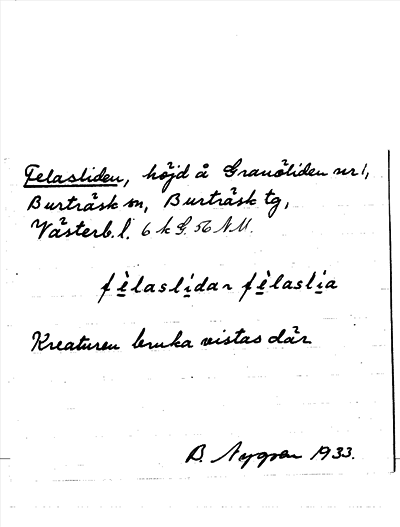 Felasliden, höjd å Granöliden nr 1,
Burträsk sn, Burträsk tg,
Västerb. l. 6 k G. 56 N.M.
fèlaslidar fèlaslia
Kreaturen bruka vistas där
B. Nygren 1933.